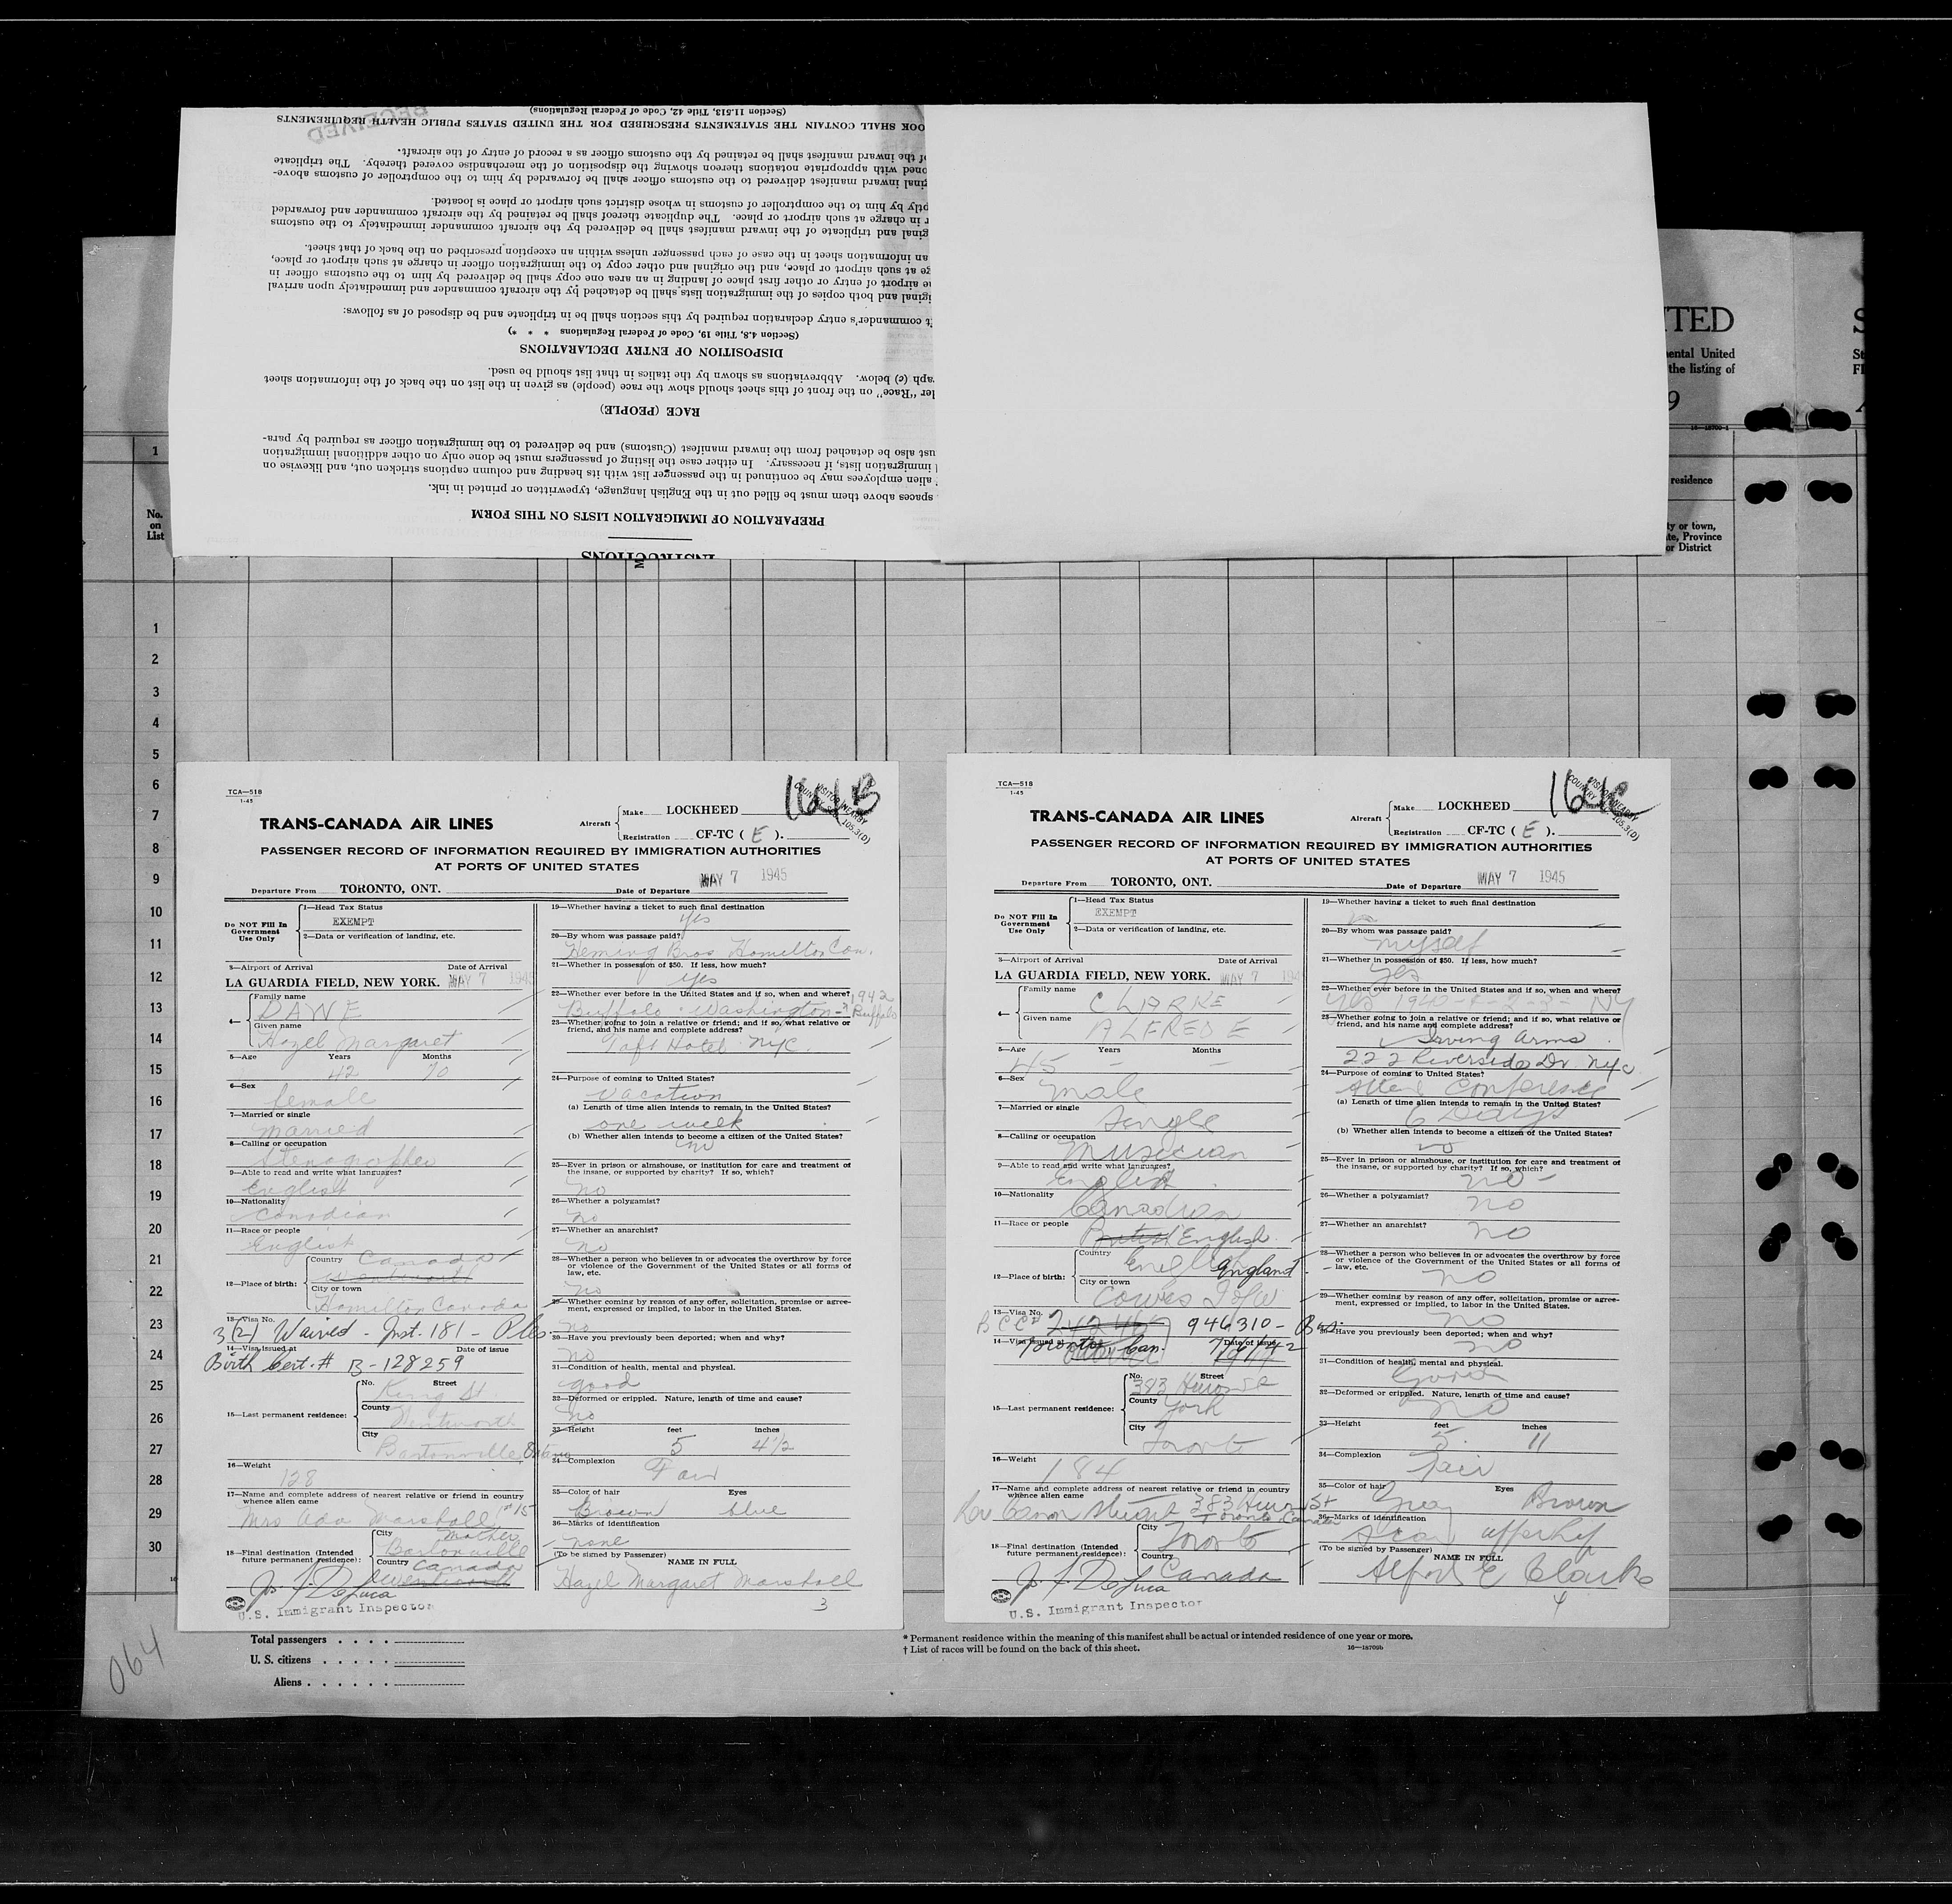 INSTRUCTIONS
PREPARATION OF IMMIGRATION LISTS ON THIS FORM
spaces above them must be filled out in the English language, typewritten or printed in ink.
alien employees may be continued in the passenger list with its heading and column captions stricken out, and likewise on
immigration lists, if necessary. In either case the listing of passengers must be done only on other additional immigration
ust also be detached from the inward manifest (Customs) and be delivered to the immigration officer as required by para-
RACE (PEOPLE)
der "Race" on the front of this sheet should show the race (people) as given in the list on the back of the information sheet
aph (c) below. Abbreviations as shown by the italics in that list should be used.
DISPOSITION OF ENTRY DECLARATIONS
(Section 4.8, Title 19, Code of Federal Regulations * * *)
ft commander's entry declaration required by this section shall be in triplicate and be disposed of as follows:
ginal and both copies of the immigration lists shall be detached by the aircraft commander and immediately upon arrival
he airport of entry or other first place of landing in an area one copy shall be delivered by him to the customs officer in
ge at such airport or place, and the original and other copy to the immigration officer in charge at such airport or place,
an information sheet in the case of each passenger unless within an exception prescribed on the back of that sheet.
ginal and triplicate of the inward manifest shall be delivered by the aircraft commander immediately to the customs
r in charge at such airport or place. The duplicate thereof shall be retained by the aircraft commander and forwarded
ptly by him to the comptroller of customs in whose district such airport or place is located.
ginal inward manifest delivered to the customs officer shall be forwarded by him to the comptroller of customs above-
oned with appropriate notations thereon showing the disposition of the merchandise covered thereby. The triplicate
of the inward manifest shall be retained by the customs officer as a record of entry of the aircraft.
OOK SHALL CONTAIN THE STATEMENTS PRESCRIBED FOR THE UNITED STATES PUBLIC HEALTH REQUIREMENTS
(Section 11.513, Title 42, Code of Federal Regulations)
RECEIVED
ITED
ental United
the listing of
9
16-18709-1
residence
ty or town,
te, Province
or District
1
No.
on
List
1
2
3
4
5
6
7
8
9
10
11
12
13
14
15
16
17
18
19
20
21
22
23
24
25
26
27
28
29
30
TCA—518
1-45
164B
TRANS-CANADA AIR LINES
Aircraft
Make LOCKHEED
Registration CF-TC ( E ).
PASSENGER RECORD OF INFORMATION REQUIRED BY IMMIGRATION AUTHORITIES
AT PORTS OF UNITED STATES
Departure From TORONTO, ONT. Date of Departure MAY 7 1945
Do NOT Fill In
Government
Use Only
1—Head Tax Status
EXEMPT
2—Data or verification of landing, etc.
3—Airport of Arrival Date of Arrival
LA GUARDIA FIELD, NEW YORK. MAY 7 1945
4—
Family name
DAWE
Given name
Hazel Margaret
5—Age Years Months
42 10
6—Sex
female
7—Married or single
Married
8—Calling or occupation
Stenographer
9—Able to read and write what languages?
English
10—Nationality
Canadian
11—Race or people
English
12—Place of birth:
Country Canada
Wentworth
City or town
Hamilton Canada
13—Visa No.
3(2) Waived - Inst. 181 - Pls.
14—Visa issued at Date of issue
Birth Cert. # B-128259
15—Last permanent residence:
No. Street
King St
County
Wentworth
City
Bartonville
16—Weight
128
17—Name and complete address of nearest relative or friend in country
whence alien came
Mrs Ada Marshall
Mother
18—Final destination (Intended
future permanent residence):
City
Bartonville
Country Canada
Wentworth
Jos. F. DeLuca
U.S. Immigrant Inspector
19—Whether having a ticket to such final destination
Yes
20—By whom was passage paid?
Heming Bros Hamilton Can.
21—Whether in possession of $50. If less, how much?
Yes
22—Whether ever before in the United States and if so, when and where?
1942
Buffalo - Washington - Buffalo
23—Whether going to join a relative or friend; and if so, what relative or
friend, and his name and complete address?
Taft Hotel NYC
24—Purpose of coming to United States?
Vacation
(a) Length of time alien intends to remain in the United States?
one week
(b) Whether alien intends to become a citizen of the United States?
no
25—Ever in prison or almshouse, or institution for care and treatment of
the insane, or supported by charity? If so, which?
no
26—Whether a polygamist?
no
27—Whether an anarchist?
no
28—Whether a person who believes in or advocates the overthrow by force
or violence of the Government of the United States or all forms of
law, etc.
no
29—Whether coming by reason of any offer, solicitation, promise or agree-
ment, expressed or implied, to labor in the United States.
no
30—Have you previously been deported; when and why?
no
31—Condition of health, mental and physical.
good
32—Deformed or crippled. Nature, length of time and cause?
no
33—Height feet inches
5 4 1/2
34—Complexion
Fair
35—Color of hair Eyes
Brown blue
36—Marks of identification
none
(To be signed by Passenger) NAME IN FULL
Hazel Margaret Marshall
3
TCA—518
1-45
164C
TRANS-CANADA AIR LINES
Aircraft
Make LOCKHEED
Registration CF-TC ( E ).
PASSENGER RECORD OF INFORMATION REQUIRED BY IMMIGRATION AUTHORITIES
AT PORTS OF UNITED STATES
Departure From TORONTO, ONT. Date of Departure MAY 7 1945
Do NOT Fill In
Government
Use Only
1—Head Tax Status
EXEMPT
2—Data or verification of landing, etc.
3—Airport of Arrival Date of Arrival
LA GUARDIA FIELD, NEW YORK. MAY 7 194
4—
Family name
CLARKE
Given name
ALFRED E
5—Age Years Months
45 — —
6—Sex
Male
7—Married or single
Single
8—Calling or occupation
Musician
9—Able to read and write what languages?
English
10—Nationality
Canadian
11—Race or people
British English
12—Place of birth:
Country
England
City or town
Cowes I of W
13—Visa No.
BCC# 242465 946310 - Bus.
14—Visa issued at Date of issue
Toronto, Can. 7/6/42
15—Last permanent residence:
No. Street
383 Huron St
County
York
City
Toronto
16—Weight
184
17—Name and complete address of nearest relative or friend in country
whence alien came
Rev Canon Stuart 383 Huron St
Toronto Canada
18—Final destination (Intended
future permanent residence):
City
Toronto
Country
Canada
Jos. F. DeLuca
U.S. Immigrant Inspector
19—Whether having a ticket to such final destination
20—By whom was passage paid?
Myself
21—Whether in possession of $50. If less, how much?
Yes
22—Whether ever before in the United States and if so, when and where?
Yes 1940-1-2-3- NY
23—Whether going to join a relative or friend; and if so, what relative or
friend, and his name and complete address?
Irving Arms
222 Riverside Dr. NYC
24—Purpose of coming to United States?
Attend Conference
(a) Length of time alien intends to remain in the United States?
6 Days
(b) Whether alien intends to become a citizen of the United States?
no
25—Ever in prison or almshouse, or institution for care and treatment of
the insane, or supported by charity? If so, which?
no
26—Whether a polygamist?
no
27—Whether an anarchist?
no
28—Whether a person who believes in or advocates the overthrow by force
or violence of the Government of the United States or all forms of
law, etc.
no
29—Whether coming by reason of any offer, solicitation, promise or agree-
ment, expressed or implied, to labor in the United States.
no
30—Have you previously been deported; when and why?
no
31—Condition of health, mental and physical.
Good
32—Deformed or crippled. Nature, length of time and cause?
no
33—Height feet inches
5 11
34—Complexion
Fair
35—Color of hair Eyes
Grey Brown
36—Marks of identification
Scar upper lip
(To be signed by Passenger) NAME IN FULL
Alfred E Clarke
4
064
Total passengers . . . .
U.S. citizens . . . . .
Aliens . . . . . .
* Permanent residence within the meaning of this manifest shall be actual or intended residence of one year or more.
† List of races will be found on the back of this sheet.
16—18709b